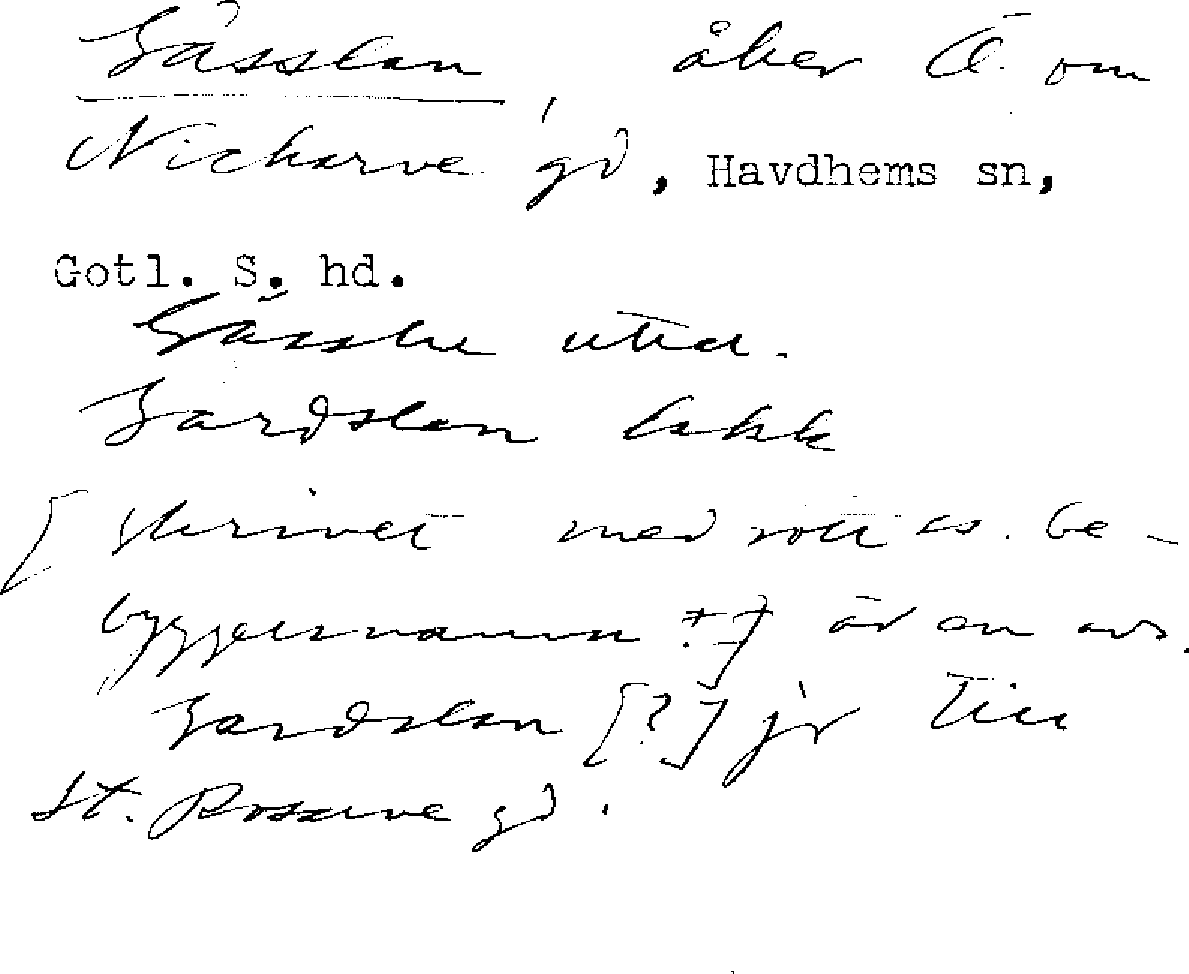 Gåsslan, åker Ö. om
Nickarve gd, Havdhems sn,
Gotl. S. hd.
Gåssla uttal.
Gardslan
[skrivet med rött ss. be-
byggelsenamn ?] är en avs.
Gardslan [?] jfr till
St. Rosarve gd.